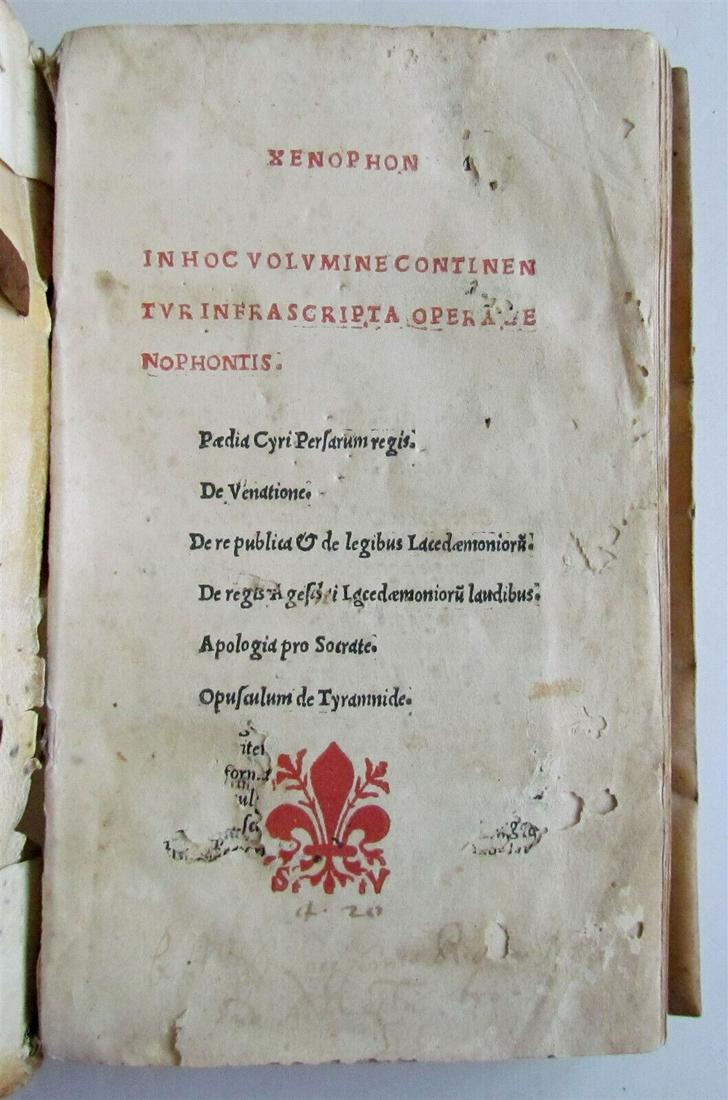 XENOPHON
IN HOC VOLVMINE CONTINEN
TVR INFRASCRIPTA OPERA
NOPHONTIS.
Pædia Cyri Perſarum regis.
De Venatione.
De re publica & de legibus Lacedæmoniorũ.
De regis Lacedæmoniorũ laudibus.
Apologia pro Socrate.
Opuſculum de Tyrannide.
S V